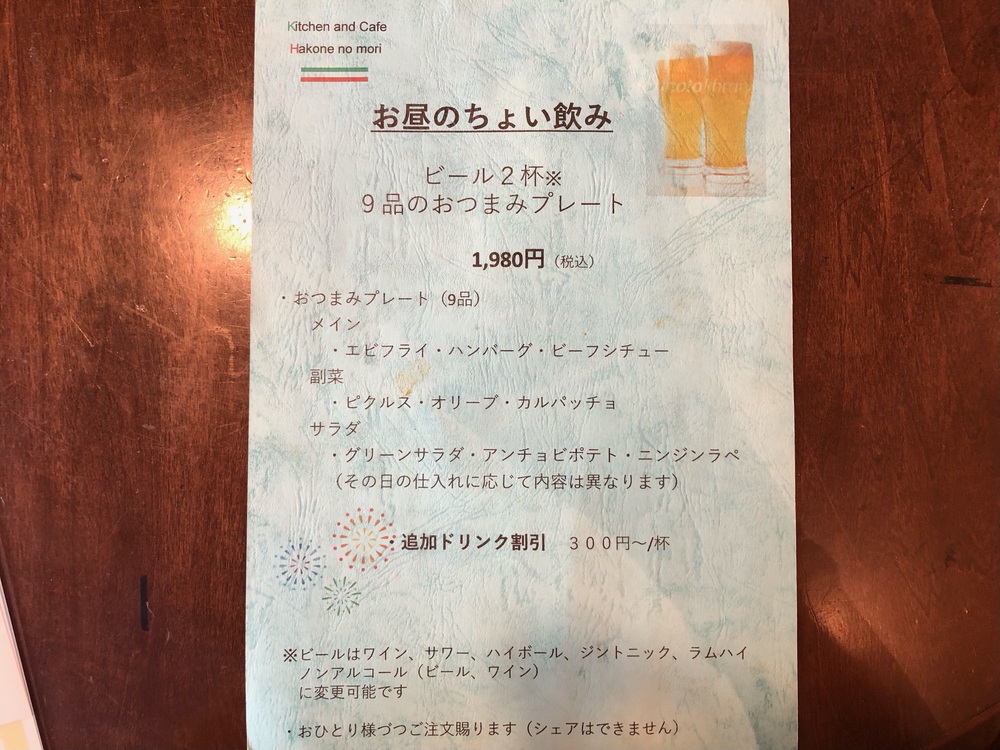 Kitchen and Cafe
Hakone no mori
お昼のちょい飲み
ビール２杯※
９品のおつまみプレート
1,980円（税込）
・おつまみプレート（9品）
メイン
・エビフライ・ハンバーグ・ビーフシチュー
副菜
・ピクルス・オリーブ・カルパッチョ
サラダ
・グリーンサラダ・アンチョビポテト・ニンジンラペ
（その日の仕入れに応じて内容は異なります）
・追加ドリンク割引　３００円～/杯
※ビールはワイン、サワー、ハイボール、ジントニック、ラムハイ
ノンアルコール（ビール、ワイン）
に変更可能です
・おひとり様づつご注文賜ります（シェアはできません）